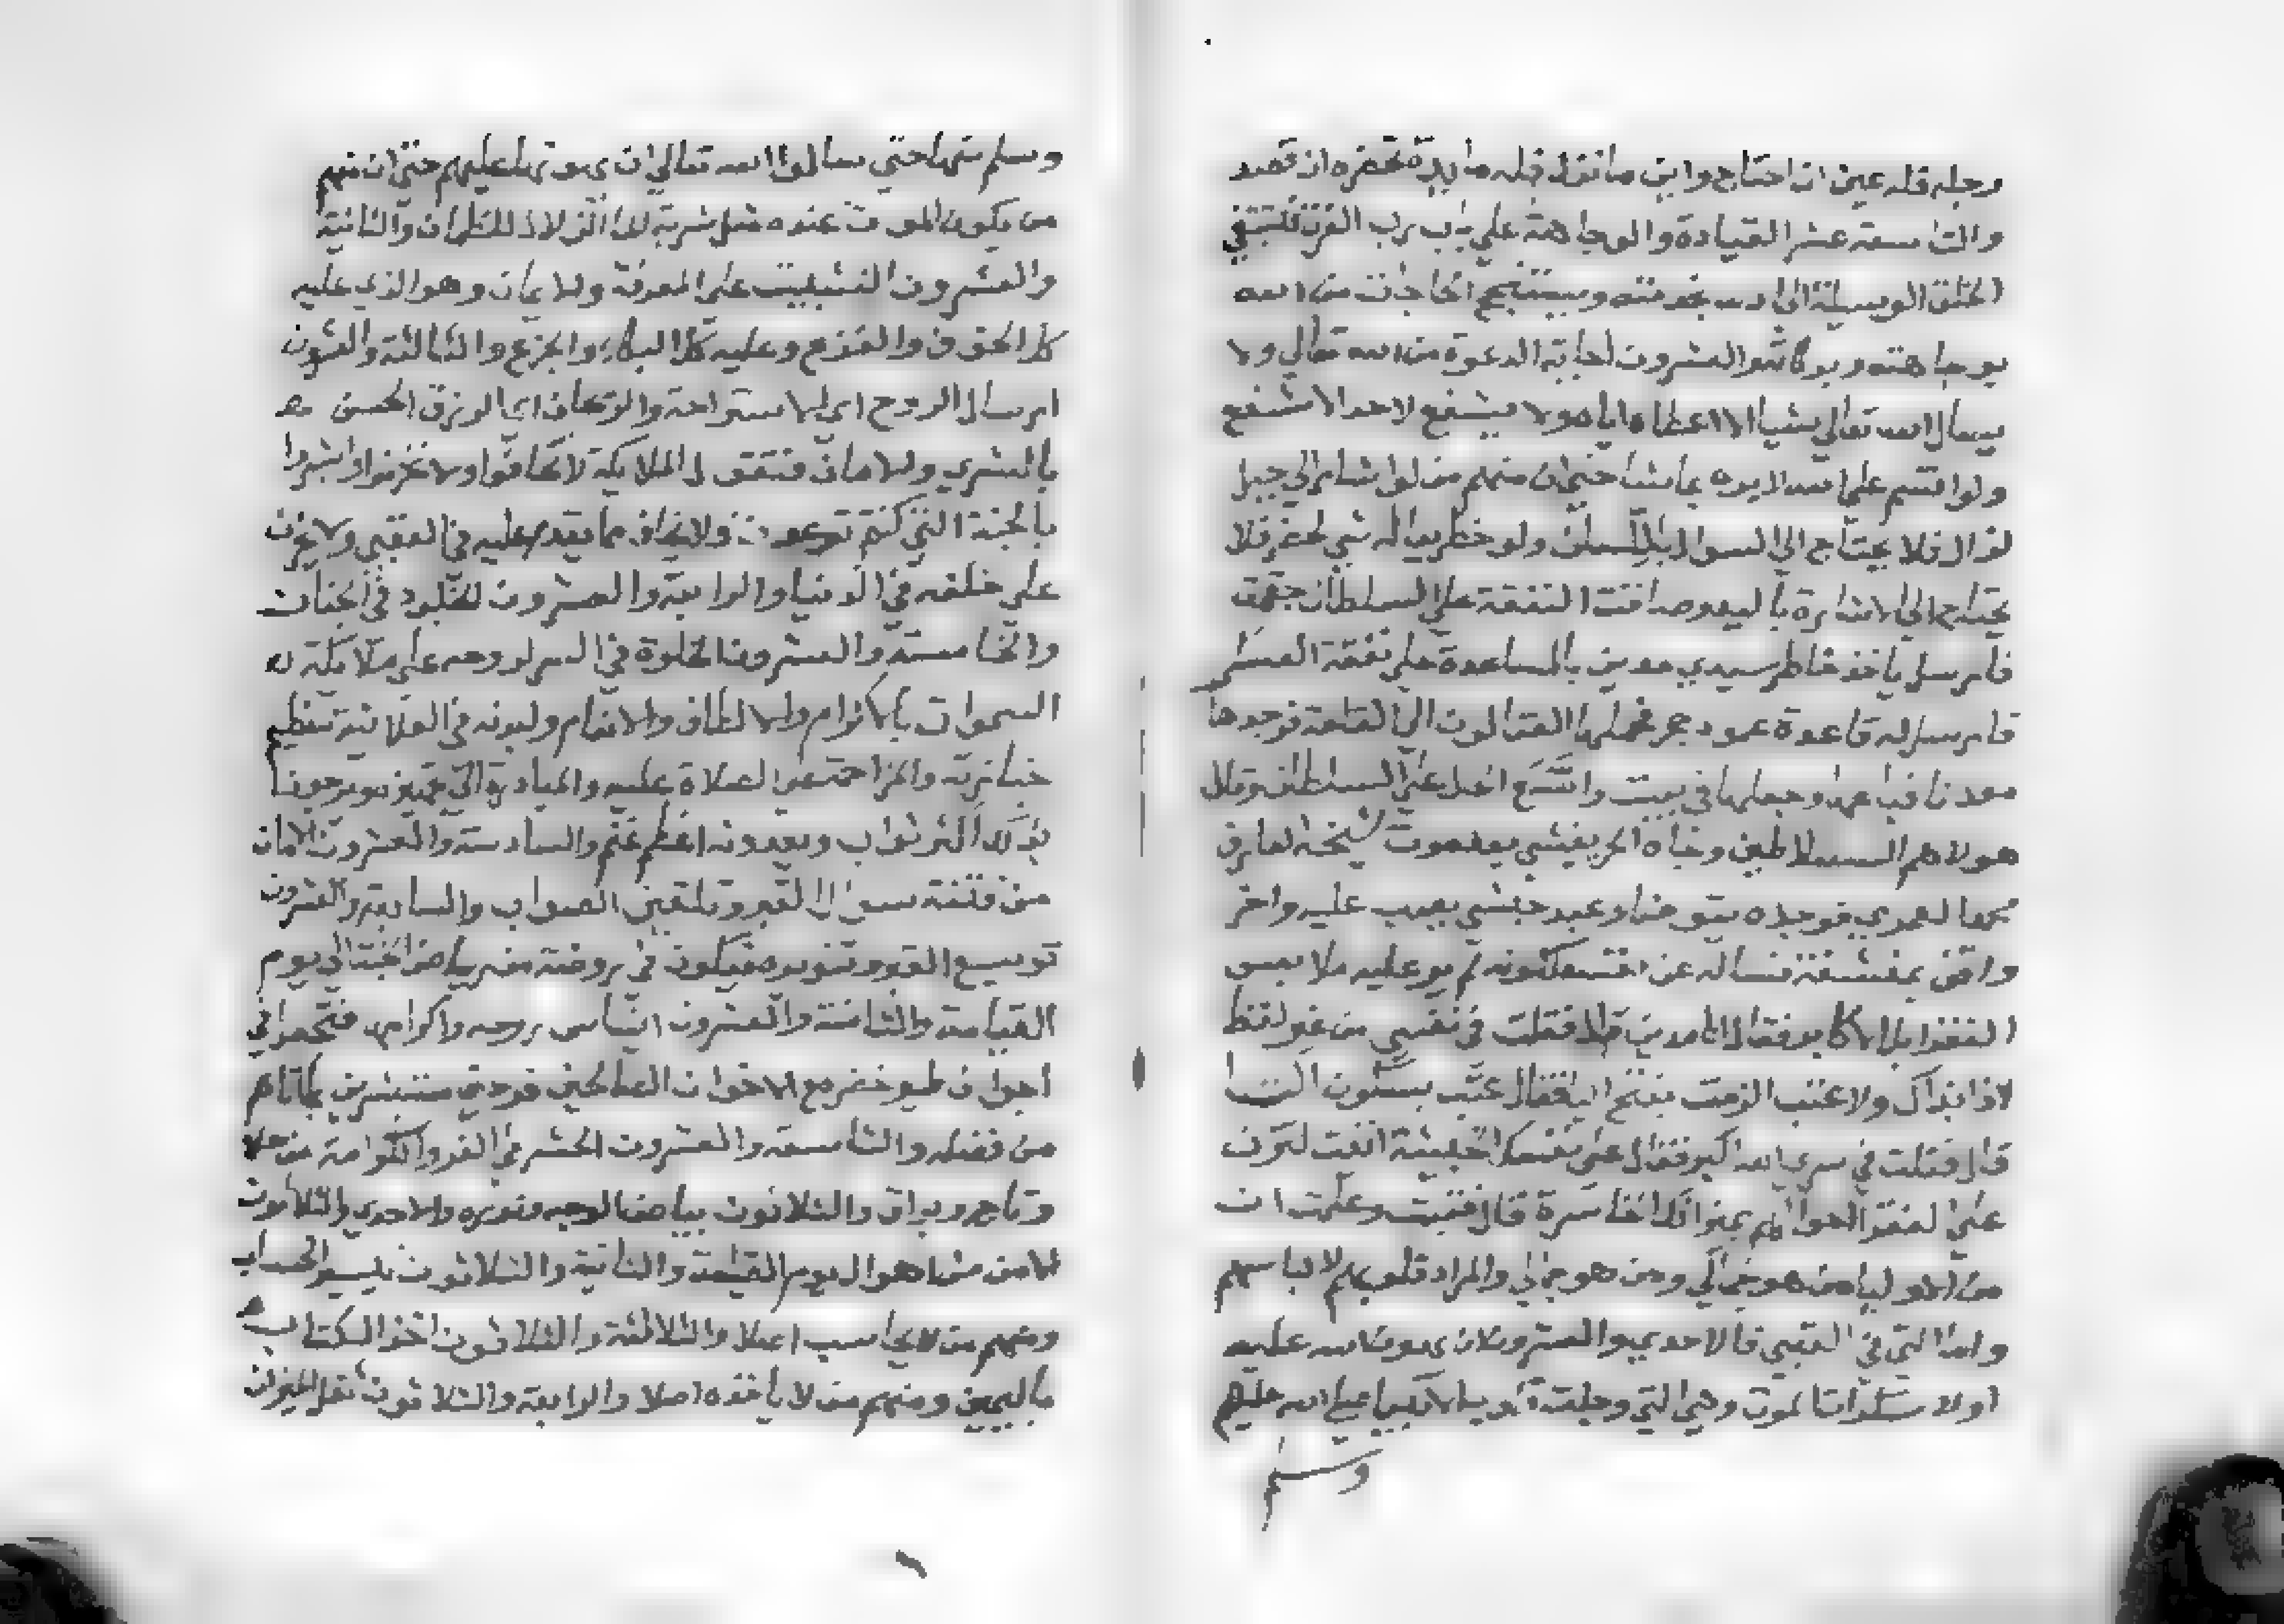 رجله فله عين ان احتاج واين ما نزل فله مايدة تحضره ان قصد
والتاسعة عشر القيادة والوجاهة علي باب رب العزة فتبتغي
الخلق الوسيلة الي الله بخدمته ويستنجح الحاجات من الله
بوجاهته وبركاته والعشرون اجابة الدعوة من الله تعالي ولا
يسال الله تعالي شيا الا اعطاه اياه ولا يشفع لاحد الا شفع
ولو اقسم علي الله لابره بما شا حتي ان منهم من لو اشار الي جبل
لزال فلا يحتاج الي السوال باللسان ولو خطر بباله شي لحضر فلا
يحتاج الي الاشارة باليد وضاقت النفقة علي السلطان جقمق
فارسل ياخذ خاطر سيدي مدين بالمساعدة علي نفقة العسكر
فارسل له قاعدة عمود حجر فحملها العتالون الي القلعة فوجدها
معدنا فباعها وجعلها في بيت واتسع الحال علي السلطان وقال
هولاهم السلاطين وجاه الحريفيشي بعد موت شيخه العارف
محمد الغمري فوجده يتوضا وعبد حبشي يصب عليه واخر
واقف بمنشفة فساله عن نفسه لكونه لم ير عليه ملابس
الفقرا بل الاكابر فقال انا مدين قال فقلت في نفسي من غير لفظ
لا ذا بذاك ولا عتب الزمن بفتح التا فقال عتب بسكون التا
قال فقلت في سري الله اكبر فقال علي نفسك الخبيثة اتيت لتزن
علي الفقرا احوالهم بميزانك الخاسرة قال فتبت وعلمت ان
من الاوليا من هو جمالي ومن هو جلالي والمراد قلوبهم لا لباسهم
واما التي في العقبي فالاحدي والعشرون ان يهون الله عليه
اولا سكرات الموت وهي التي وجلت قلوب الانبيا صلي الله عليهم
وسلم
وسلم منها حتي سالوا الله تعالي ان يهونها عليهم حتي ان منهم
من يكون الموت عنده مثل شربة الما الزلال للظمان والثانية
والعشرون التثبيت علي المعرفة والايمان وهو الذي عليه
كل الخوف والفزع وعليه كل البكا والجزع والثالثة والعشرون
ارسال الروح اي الاستراحة والريحان اي الرزق الحسن
بالبشري والامان فتقول الملايكة لا تخافوا ولا تحزنوا وابشروا
بالجنة التي كنتم توعدون ولا يخاف مما يقدم عليه في العقبي ولا يحزن
علي خلفه في الدنيا والرابعة والعشرون الخلود في الجنات
والخامسة والعشرون الخلوة في السر لروحه علي ملايكة
السموات بالاكرام والالطاف والانعام ولبدنه في العلانية تعظيم
جنازته والمزاحمة علي الصلاة عليه والمبادرة الي تجهيزه يرجون
بذلك اكثر ثواب ويعدونه اعظم غنم والسادسة والعشرون الامان
من فتنة سوال القبر وتلقين الصواب والسابعة والعشرون
توسيع القبر وتنويره فيكون في روضة من رياض الجنة الي يوم
القيامة والثامنة والعشرون ايناس روحه واكرامها فتجعل في
اجواف طير خضر مع الاخوان الصالحين فرحين مستبشرين بما اتاهم
من فضله والتاسعة والعشرون الحشر في العز والكرامة من حلل
وتاج وبراق والثلاثون بياض الوجه ونوره والاحدي والثلاثون
الامن من اهوال يوم القيامة والثانية والثلاثون تيسير الحساب
ومنهم من لا يحاسب اصلا والثالثة والثلاثون اخذ الكتاب
باليمين ومنهم من لا ياخذه اصلا والرابعة والثلاثون ثقل الميزان